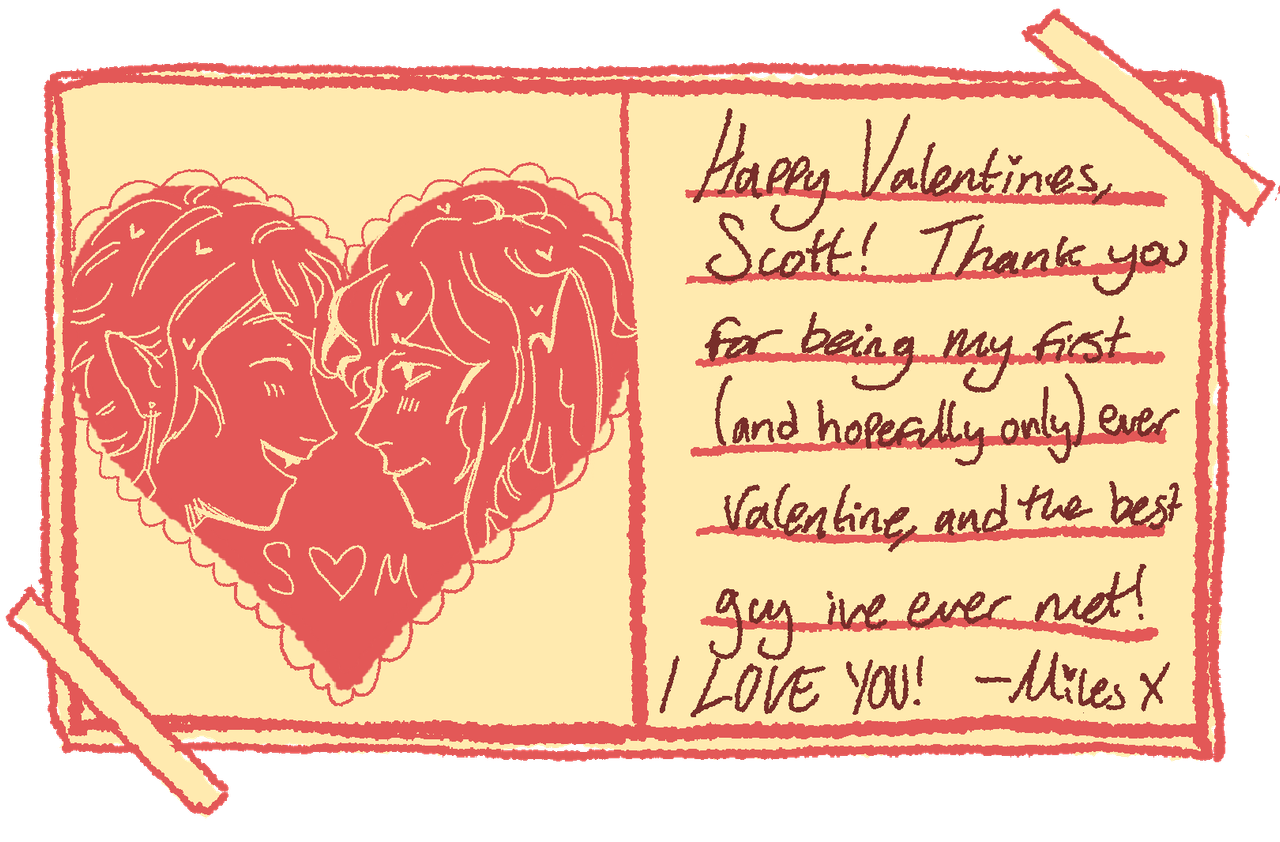 S ♡ M
Happy Valentines,
Scott! Thank you
for being my first
(and hopefully only) ever
valentine, and the best
guy ive ever met!
I LOVE YOU! -Miles X